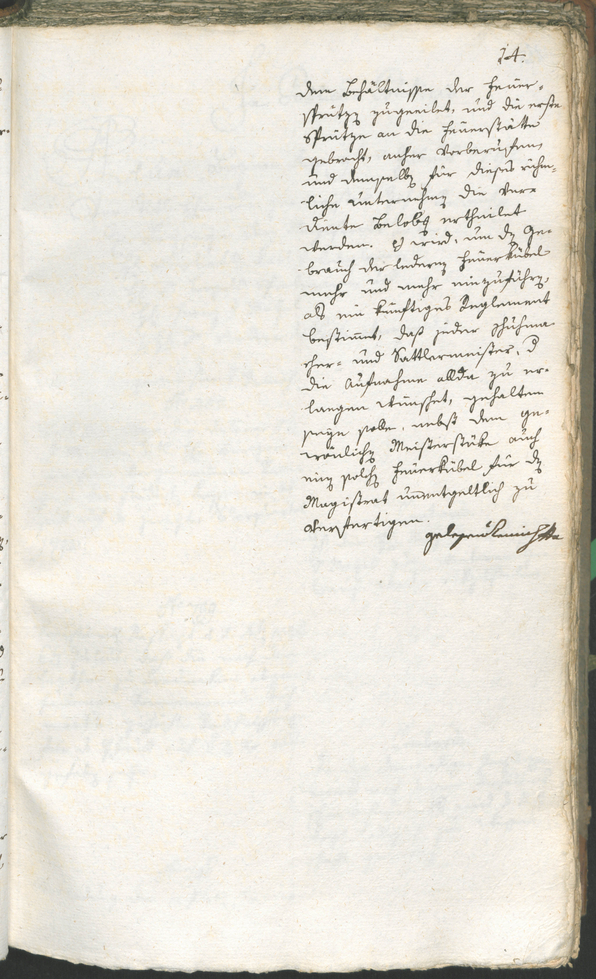 14.
dem Behältnisse der Feuer-
sprütze zugeeilet, und die erste
Sprütze an die Feuerstätte
gebracht, anher Vorberufen,
und demselben für dieses rühm-
liche Unternehmen die Ver-
diente Belobg ertheilet
werden. Es wird, um den Ge-
brauch der ledernen Feuerkübel
mehr und mehr einzuführen,
als ein künftiges Reglement
bestimmt, daß jeder Schuhma
cher- und Sattlermeister, d
die Aufnahme allda zu er-
langen wünschet, gehalten
seyn solle, nebst dem ge-
wönlichen Meisterstüke auch
einen solchen Feuerkübel für den
Magistrat unentgeltlich zu
Verfertigen.
gelesen